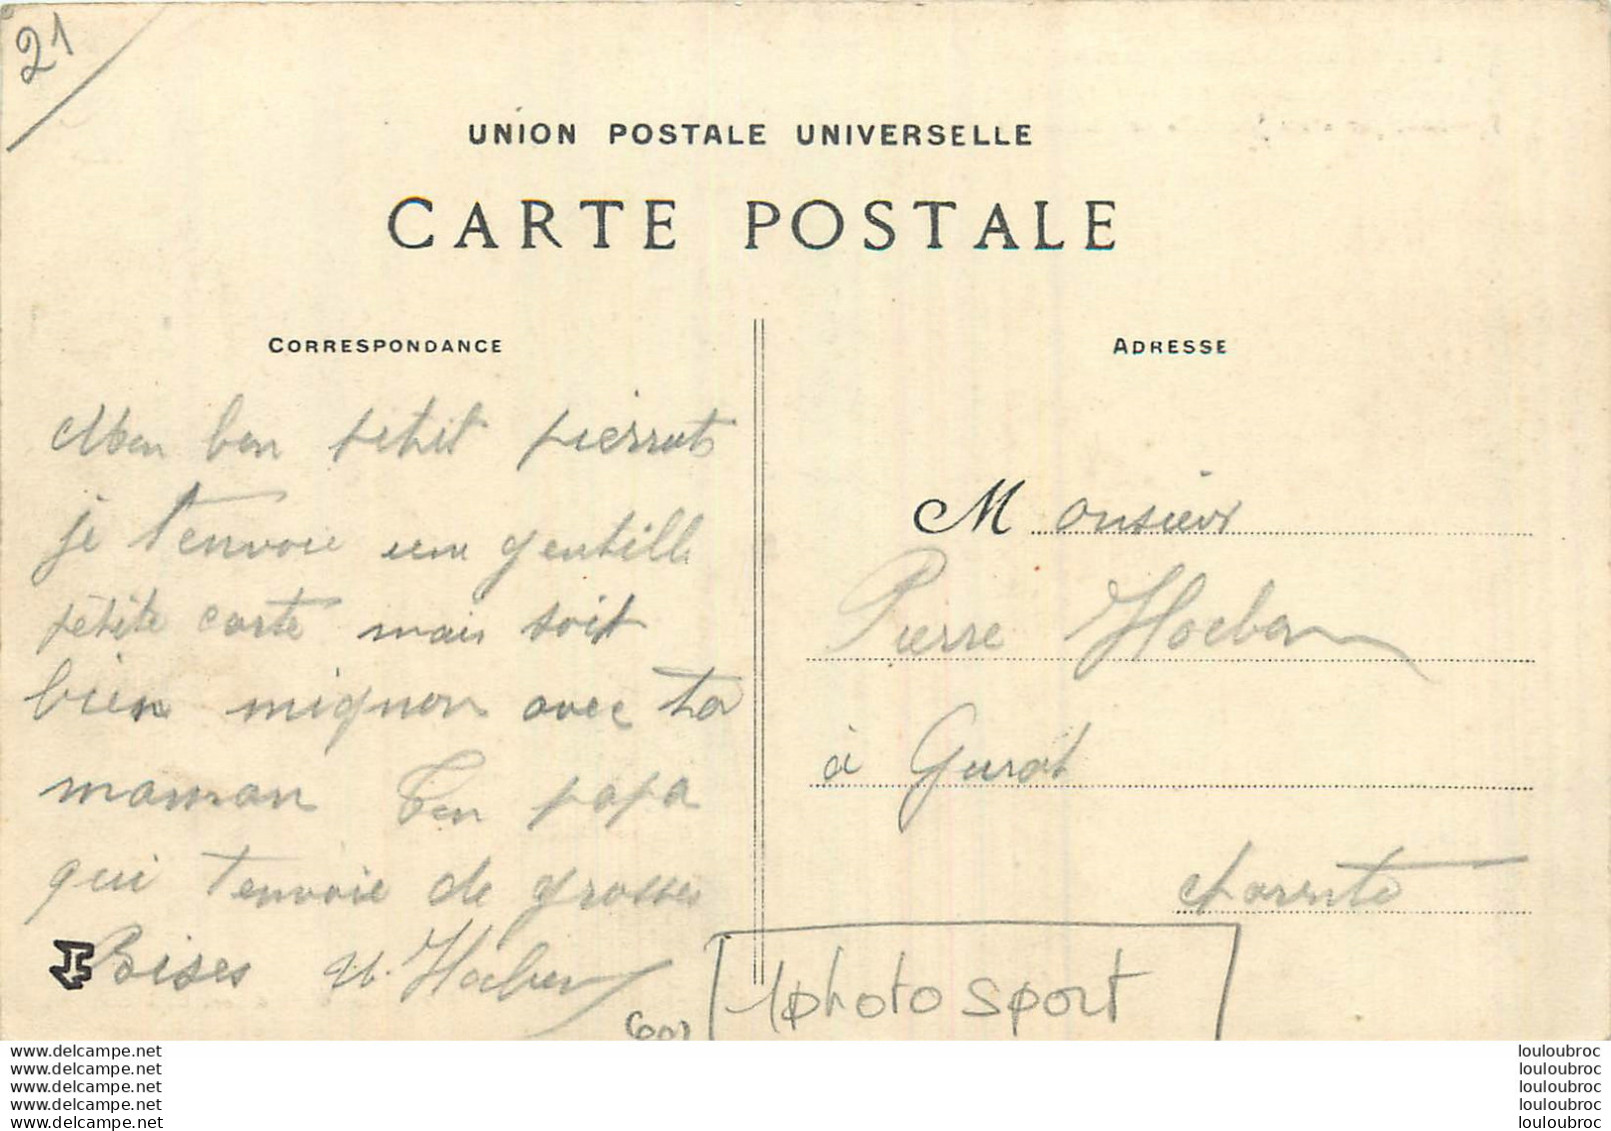 21
UNION POSTALE UNIVERSELLE
CARTE POSTALE
CORRESPONDANCE
ADRESSE
Mon bon petit pierrot
je t'envoie une gentille
petite carte mais soit
bien mignon avec ta
maman Ton papa
qui t'envoie de grosses
Bises
Monsieur
Pierre
à Gurat
charente
1 photo sport
www.delcampe.net
www.delcampe.net
www.delcampe.net
www.delcampe.net
www.delcampe.net
louloubroc
louloubroc
louloubroc
louloubroc
louloubroc